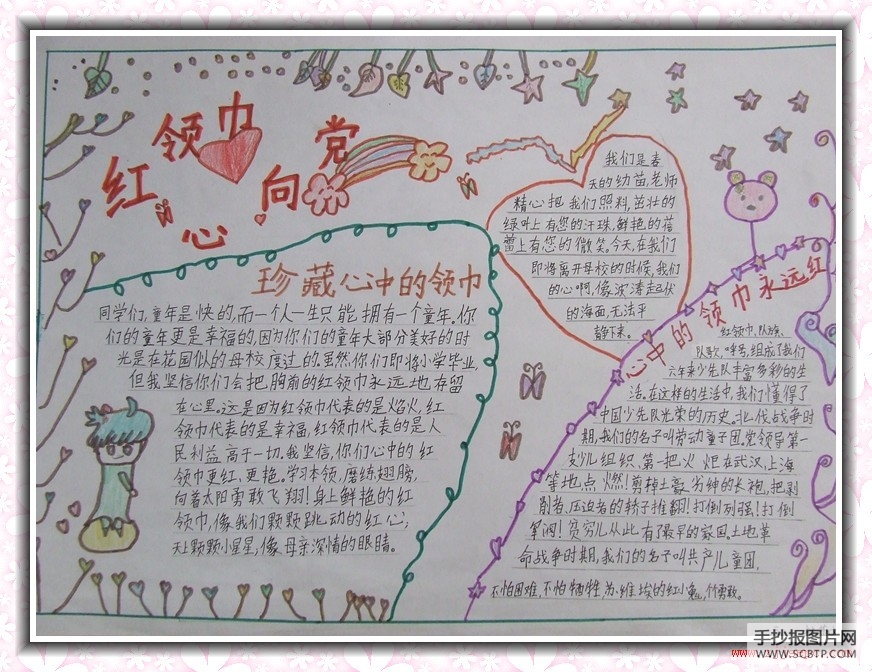 红领巾
心向党
珍藏心中的领巾
同学们,童年是快的,而一个人一生只能拥有一个童年。你
们的童年更是幸福的,因为你们的童年大部分美好的时
光是在花园似的母校度过的。虽然你们即将小学毕业,
但我坚信你们会把胸前的红领巾永远地存留
在心里。这是因为红领巾代表的是焰火,红
领巾代表的是幸福,红领巾代表的是人
民利益高于一切。我坚信,你们心中的红
领巾更红,更艳。学习本领,磨练翅膀,
向着太阳勇敢飞翔!身上鲜艳的红
领巾,像我们颗颗跳动的红心;
天上颗颗小星星,像母亲深情的眼睛。
我们是春
天的幼苗,老师
精心把我们照料,茁壮的
绿叶上有您的汗珠,鲜艳的蓓
蕾上有您的微笑。今天,在我们
即将离开母校的时候,我们
的心啊,像波涛起伏
的海面,无法平
静下来。
心中的领巾永远红
红领巾,队旗、
队歌,呼号,组成了我们
六年来少先队丰富多彩的生
活。在这样的生活中,我们懂得了
中国少先队光荣的历史。北伐战争时
期,我们的名子叫劳动童子团,党领导第一
支少儿组织、第一把火炬在武汉,上海
等地点燃!剪掉土豪劣绅的长袍,把剥
削者、压迫者的轿子推翻!打倒列强!打倒
军阀!贫穷儿从此有了最早的家园,土地革
命战争时期,我们的名子叫共产儿童团,
不怕困难,不怕牺牲,苏维埃的红小鬼,个个勇敢。
手抄报图片网
WWW.SCBTP.COM